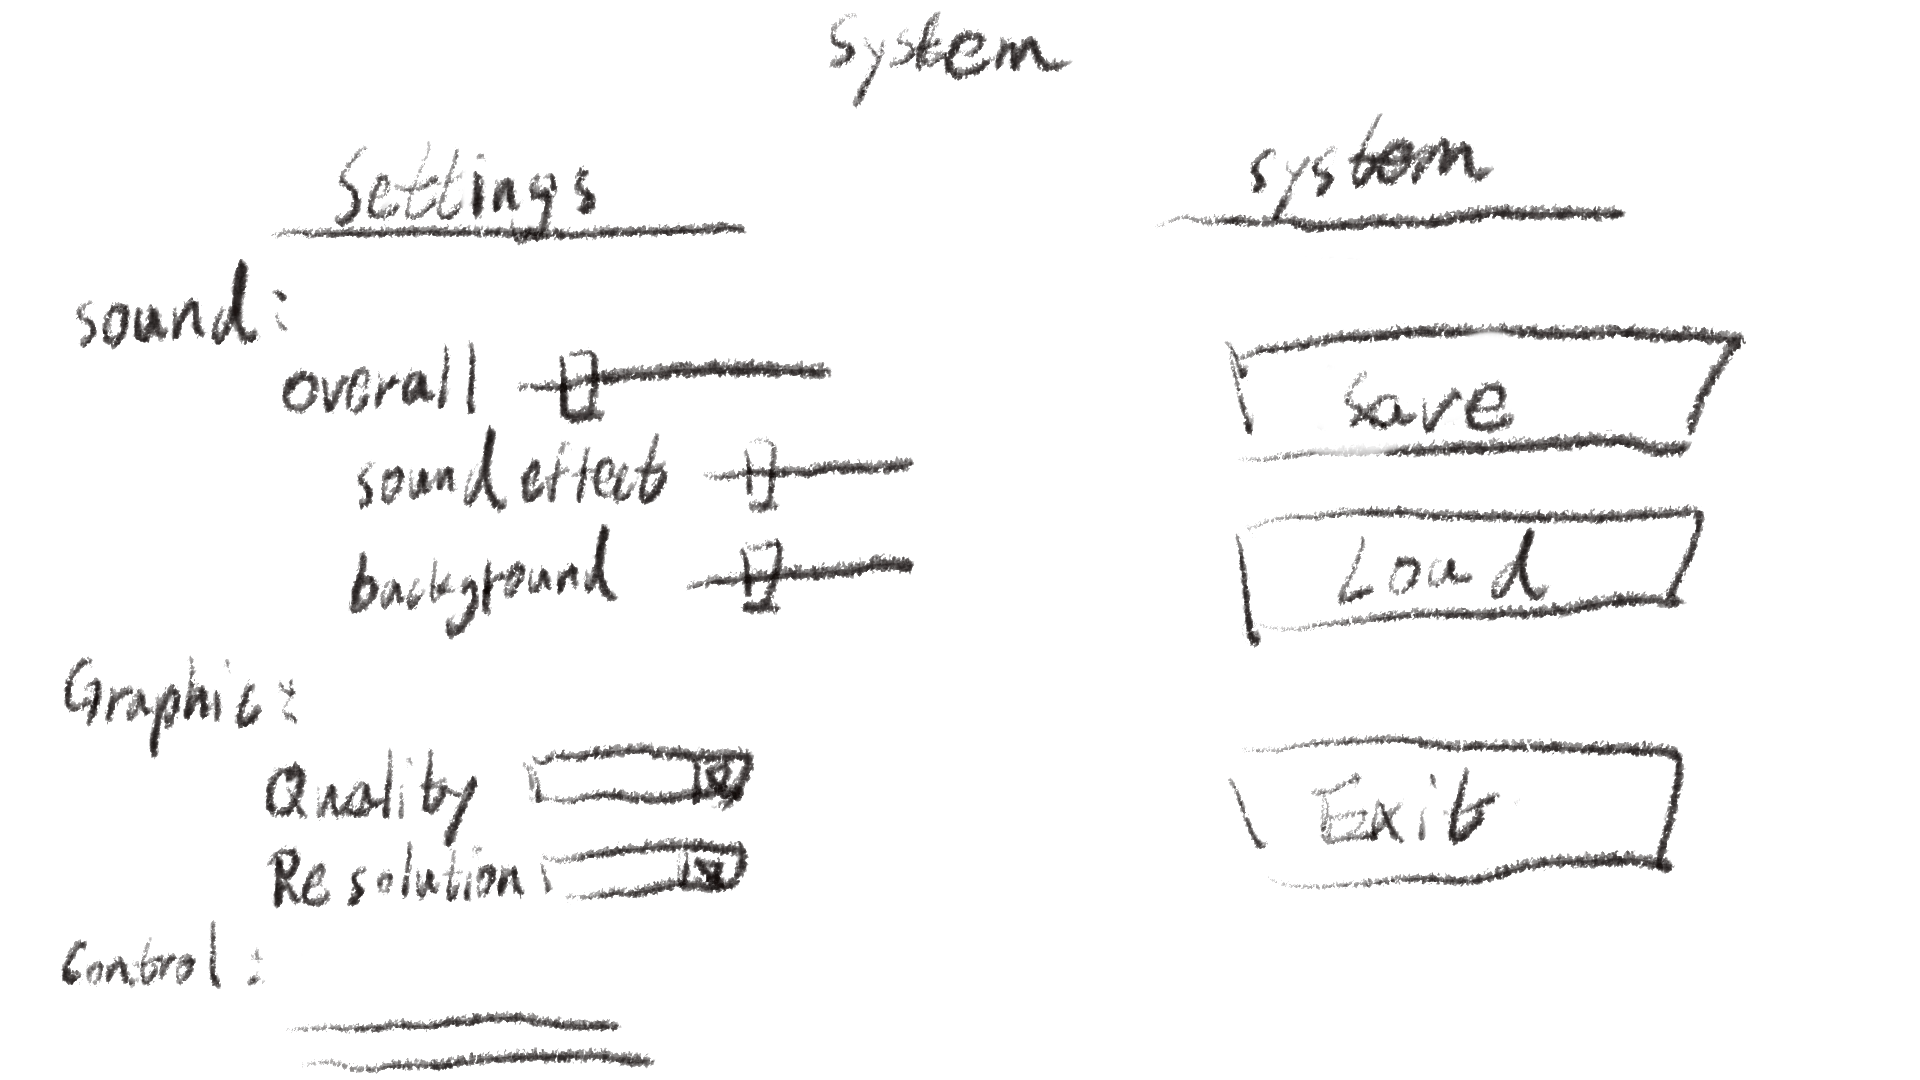 System
Settings
sound:
overall
sound effect
background
Graphic:
Quality
Resolution
Control:
system
Save
Load
Exit